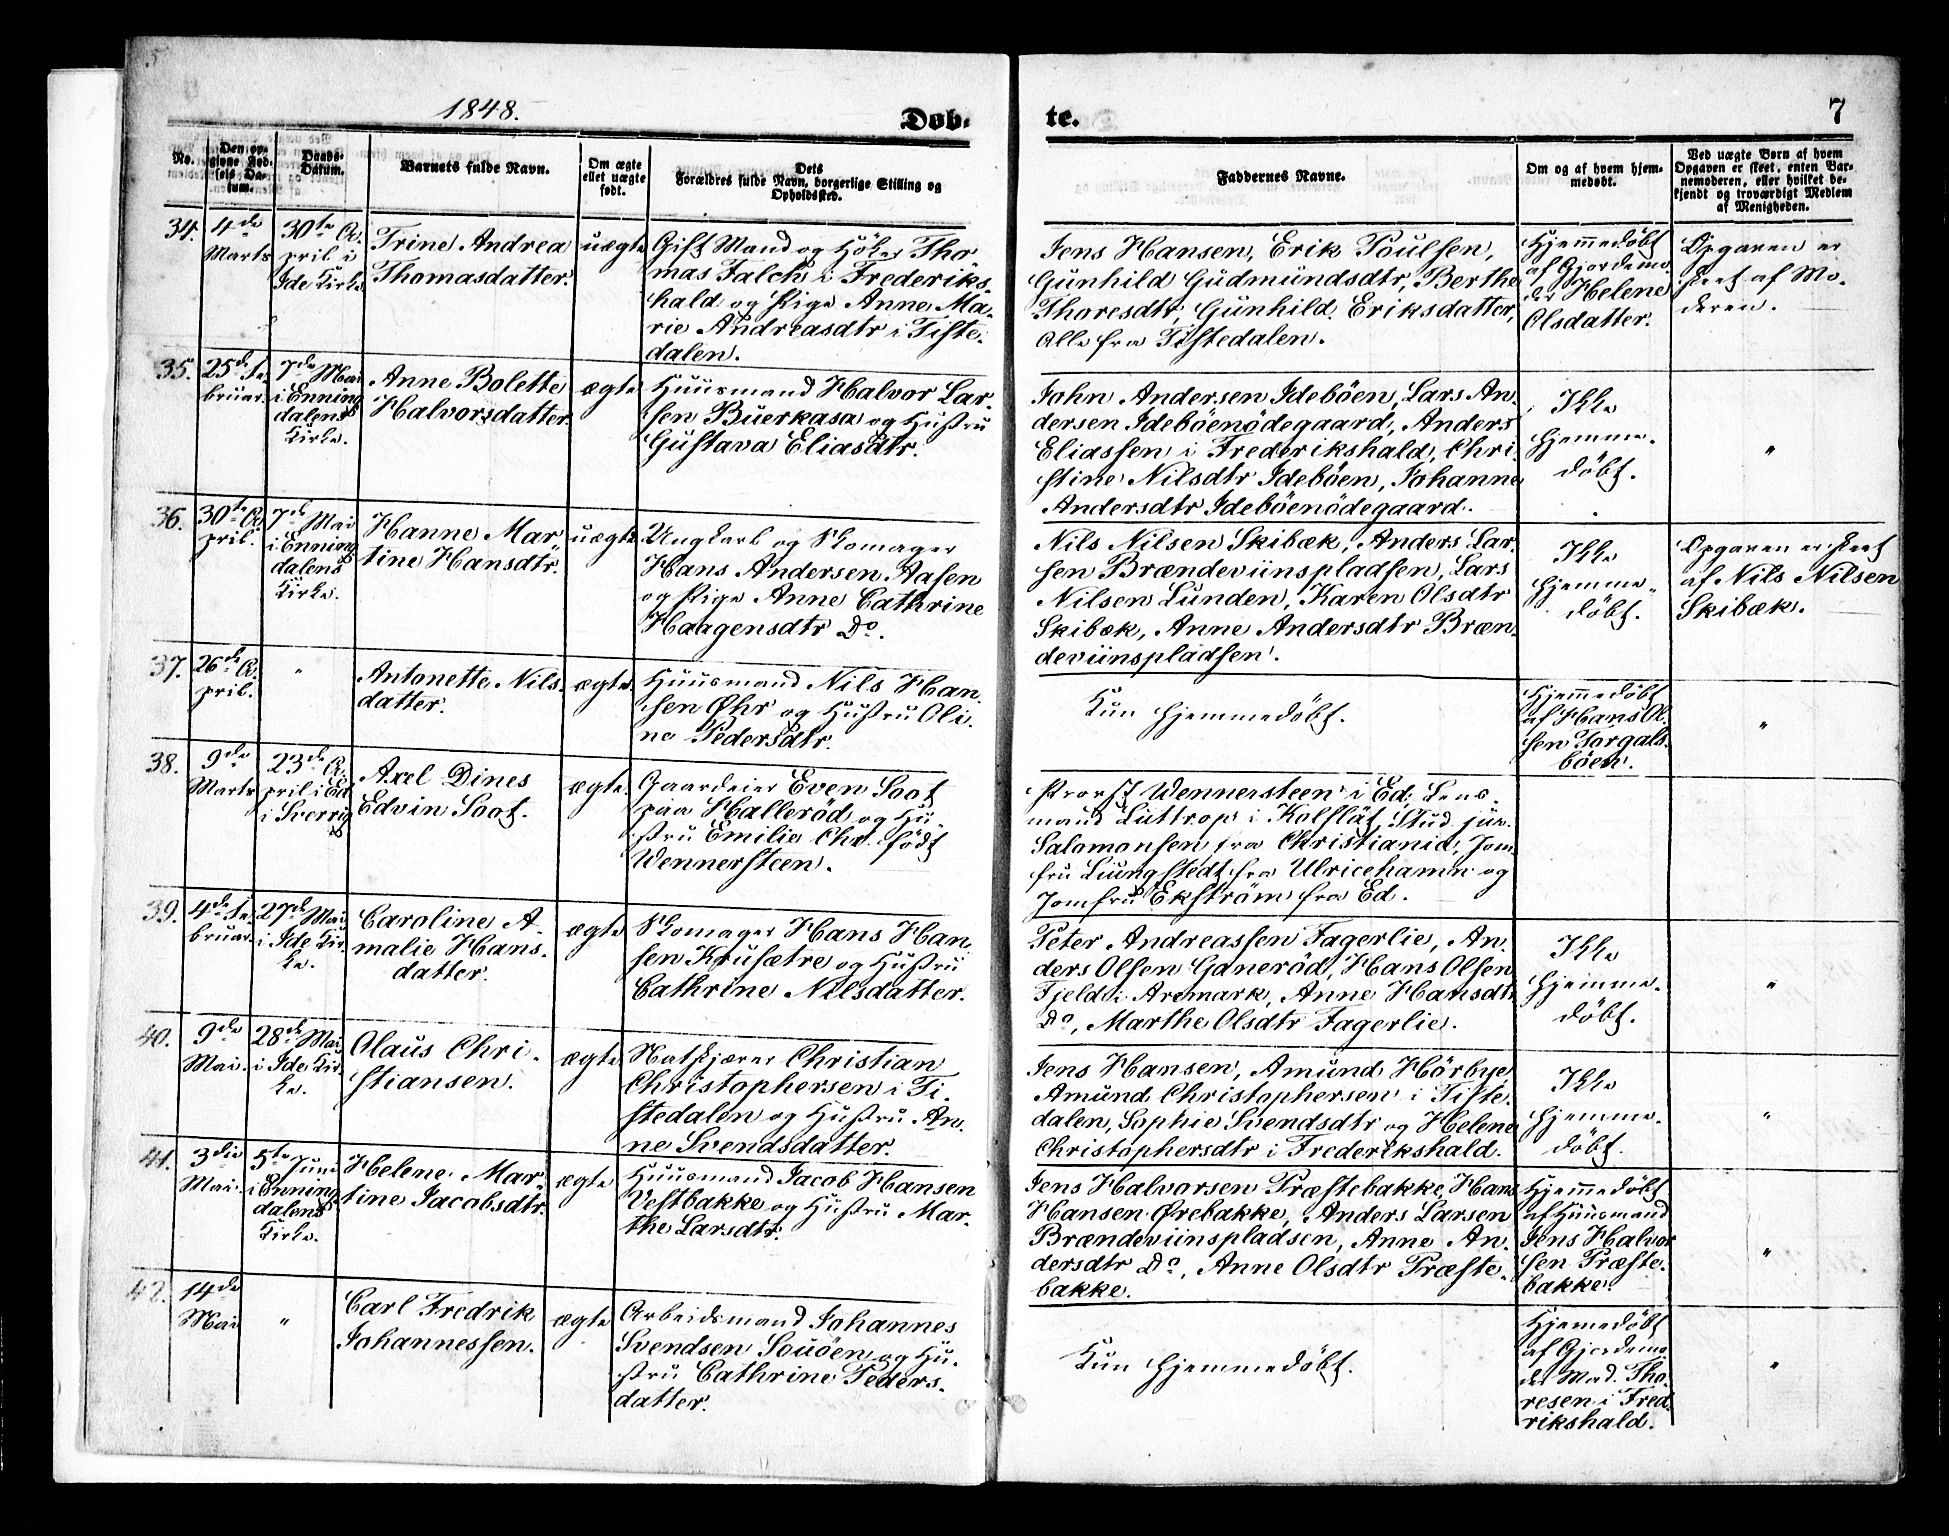 1848.
Döb-
te.
7
No.
Den op-
givne Föd-
sels Da-
tum.
Daabs-
Datum.
Barnets fulde Navn.
Om ægte
eller uægte
født.
Dets
Forældres fulde Navn, borgerlige Stilling og
Opholdssted.
Faddernes Navne.
Om og af hvem hjem-
medøbt.
Ved uægte Børn af hvem
Opgaven er skeet, enten Bar-
nemoderen, eller hvilket be-
kjendt og troværdigt Medlem
af Menigheden.
34.
4de
Marts
30te A-
pril i
Ide Kirke
Trine Andrea
Thomasdatter.
uægte
Gift Mand og Höker Tho-
mas Falch i Frederiks-
hald og Pige Anne Ma-
rie Andreasdtr i Tiste-
dalen.
Jens Hansen, Erik Poulsen,
Gunhild Gudmundsdtr, Berthe
Thoresdtr, Gunhild Eriksdatter,
Alle fra Tistedalen.
Hjemmedöbt
af Gjordemo-
der Helene
Olsdatter.
Opgaven er
skeet af Mo-
deren.
35.
25de Fe-
bruar.
7de Mai
i Enning
dalens
Kirke.
Anne Bolette
Halvorsdatter
ægte
Huusmand Halvor Lar-
sen Buerkasa og Hustru
Gustava Eliasdtr.
John Andersen Ideböen, Lars An-
dersen Ideböenödegaard, Anders
Eliassen i Frederikshald, Chri-
stine Nilsdtr Ideböen, Johanne
Andersdtr Ideböenödegaard.
Ikke
hjemme-
döbt.
"
36.
30te A-
pril.
7de Mai
i Enning
dalens
Kirke.
Hanne Mar-
tine Hansdtr.
uægte
Ungkarl og Skomager
Hans Andersen Aasen
og Pige Anne Cathrine
Haagensdtr Do.
Nils Nilsen Skibæk, Anders Lar-
sen Brændeviinspladsen, Lars
Nilsen Lunden, Karen Olsdtr
Skibæk, Anne Andersdtr Bræn-
deviinspladsen.
Ikke
hjemme-
döbt.
Opgaven er skeet
af Nils Nilsen
Skibæk.
37.
26de A-
pril.
"
Antonette Nils-
datter.
ægte.
Huusmand Nils Han-
sen Øhr og Hustru Oli-
ne Pedersdtr.
Kun hjemmedöbt.
Hjemmedöbt
af Hans Ol-
sen Torgals-
böen.
"
38.
9de
Marts
23de A-
pril i Ed
i Sverrig
Axel Dines
Edvin Soot.
ægte.
Gaardeier Even Soot
paa Halleröd og Hu-
stru Emilie Chr. födt
Wennersteen.
Provst Wennersteen i Ed, Lens-
mand Luttrop i Kolflät, Stud. jur.
Salomonsen fra Christiania, Jom-
fru Liungstedt fra Ulricehamn og
Jomfru Ekström fra Ed.
39.
4de Fe-
bruar
27de Mai
i Ide Kir-
ke.
Caroline A-
malie Hans-
datter.
ægte
Skomager Hans Han-
sen Krusætre og Hustru
Cathrine Nilsdatter.
Peter Andreassen Fagerlie, An-
ders Olsen Ganeröd, Hans Olsen
Fjeld i Aremark, Anne Hansdtr
Do, Marthe Olsdtr Fagerlie.
Ikke
hjemme-
döbt.
"
40.
9de
Mai.
28de Mai
i Ide Kir-
ke.
Olaus Chri-
stiansen.
ægte
Natskjærer Christian
Christophersen i Ti-
stedalen og Hustru An-
ne Svendsdatter.
Jens Hansen, Amund Hörbye
Amund Christophersen i Tiste-
dalen, Sophie Svendsdtr og Helene
Christophersdtr i Frederikshald.
Ikke
hjemme-
döbt.
"
41.
3die
Mai.
5te Juni
i Enning
dalens
Kirke.
Helene Mar-
tine Jacobsdtr.
ægte
Huusmand Jacob Hansen
Vestbakke og Hustru Mar-
the Larsdtr.
Jens Halvorsen Præstebakke, Hans
Hansen Ørebakke, Anders Larsen
Brændeviinspladsen, Anne An-
dersdtr Do, Anne Olsdtr Præste-
bakke.
Hjemmedöbt
af Huusmand
Jens Halvor
sen Præste-
bakke.
"
42.
14de
Mai
"
Carl Fredrik
Johannessen.
ægte
Arbeidsmand Johannes
Svendsen Souöen og Hu-
stru Cathrine Peders-
datter.
Kun hjemmedöbt.
Hjemedöbt
af Gjordemo
der Mad. Tho-
resen i Fred-
rikshald.
"